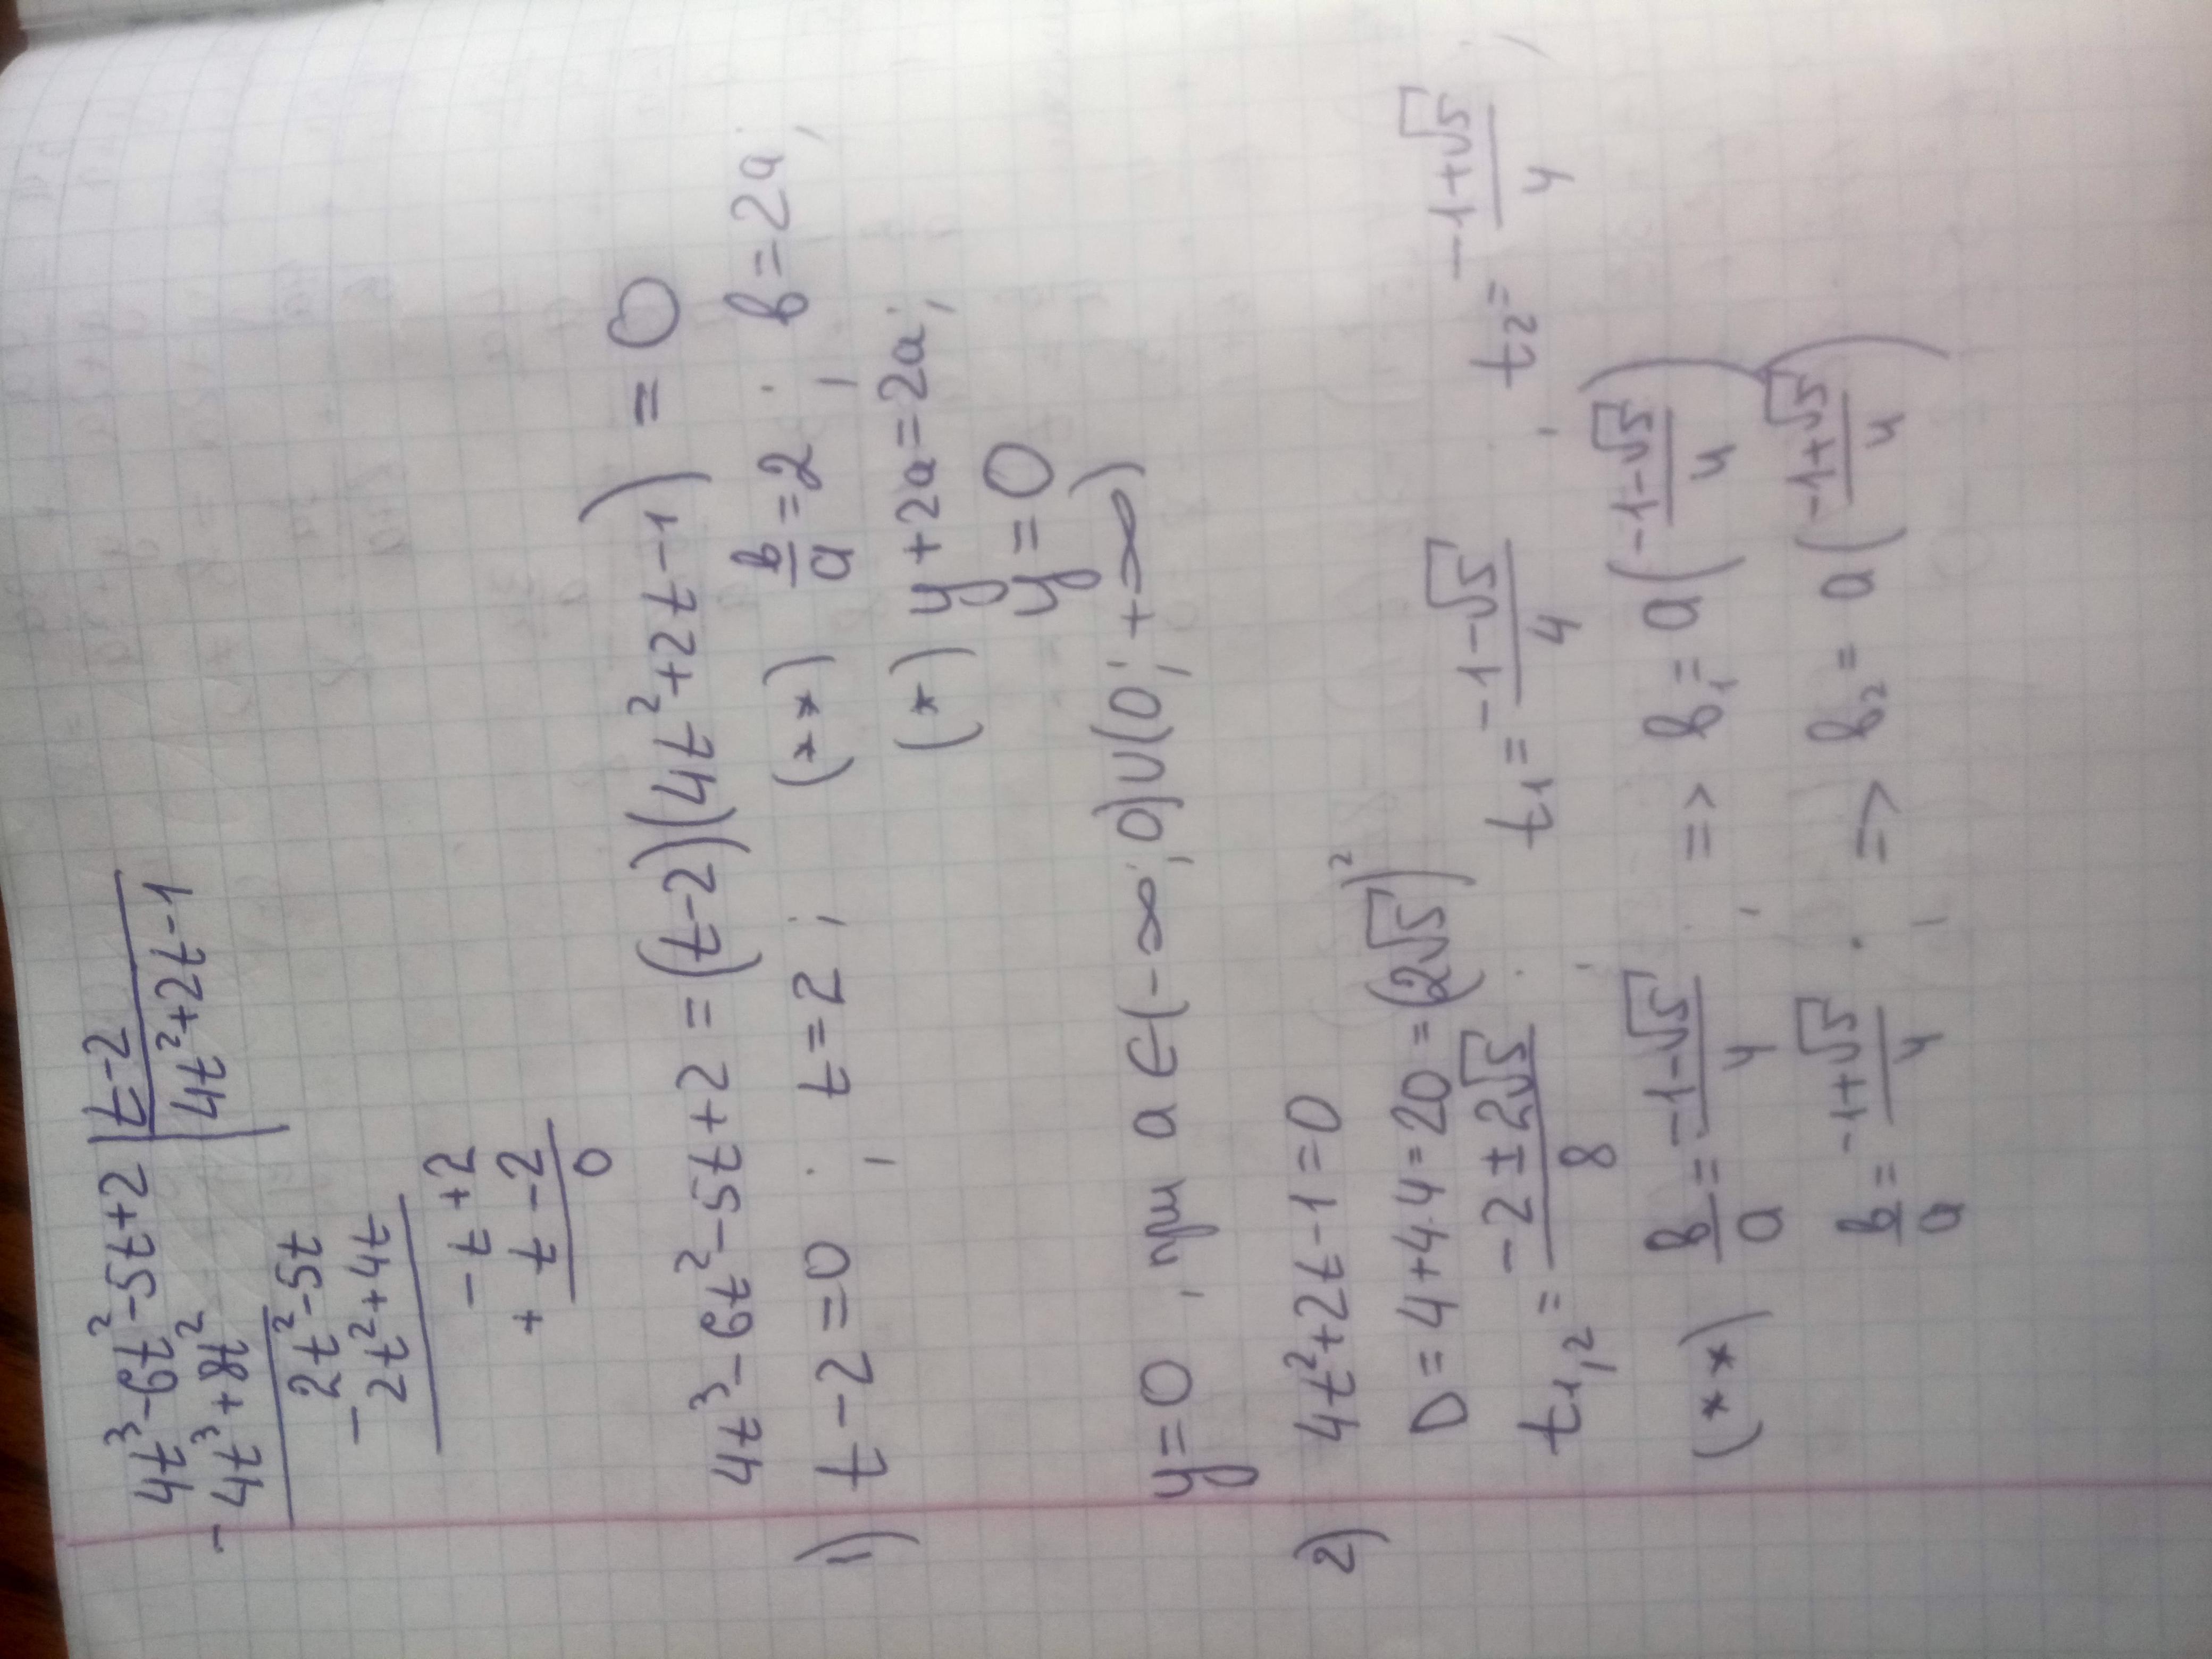 4t³-6t²-5t+2 | t-2
- 4t³+8t² | 4t²+2t-1
2t²-5t
- 2t²+4t
-t+2
+ t-2
0
4t³-6t²-5t+2=(t-2)(4t²+2t-1)=0
1) t-2=0; t=2; (**) в/а=2; в=2а;
(*) y+2a=2a;
y=0
y=0, при a∈(-∞;0)∪(0;+∞)
2) 4t²+2t-1=0
D=4+4·4=20=(2√5)²
t₁,₂=(-2±2√5)/8; t₁=(-1-√5)/4; t₂=(-1+√5)/4;
(**) в/а=(-1-√5)/4; => в₁=а((-1-√5)/4)
в/а=(-1+√5)/4; => в₂=а((-1+√5)/4)